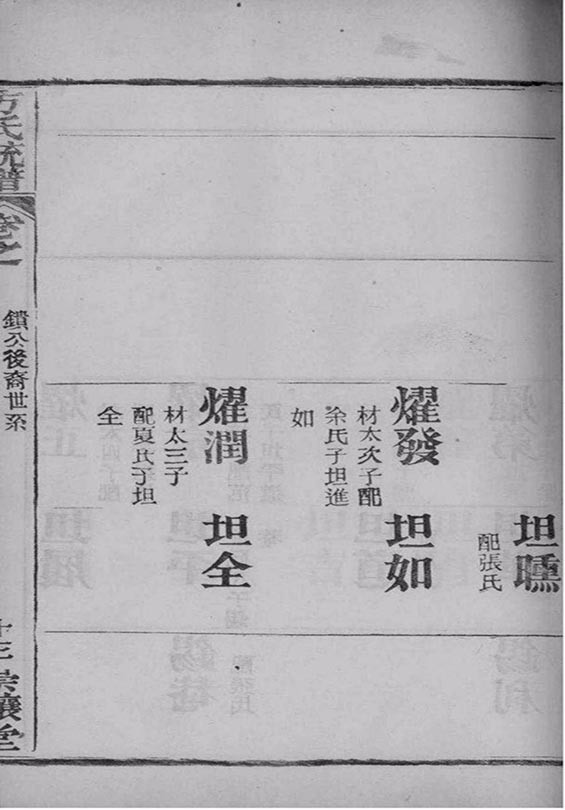 坦曛
配張氏
燿發
材太次子配
余氏子坦進
如
坦如
燿潤
材太三子
配夏氏子坦
全
坦全
方氏統譜
卷之
鐨公後裔世系